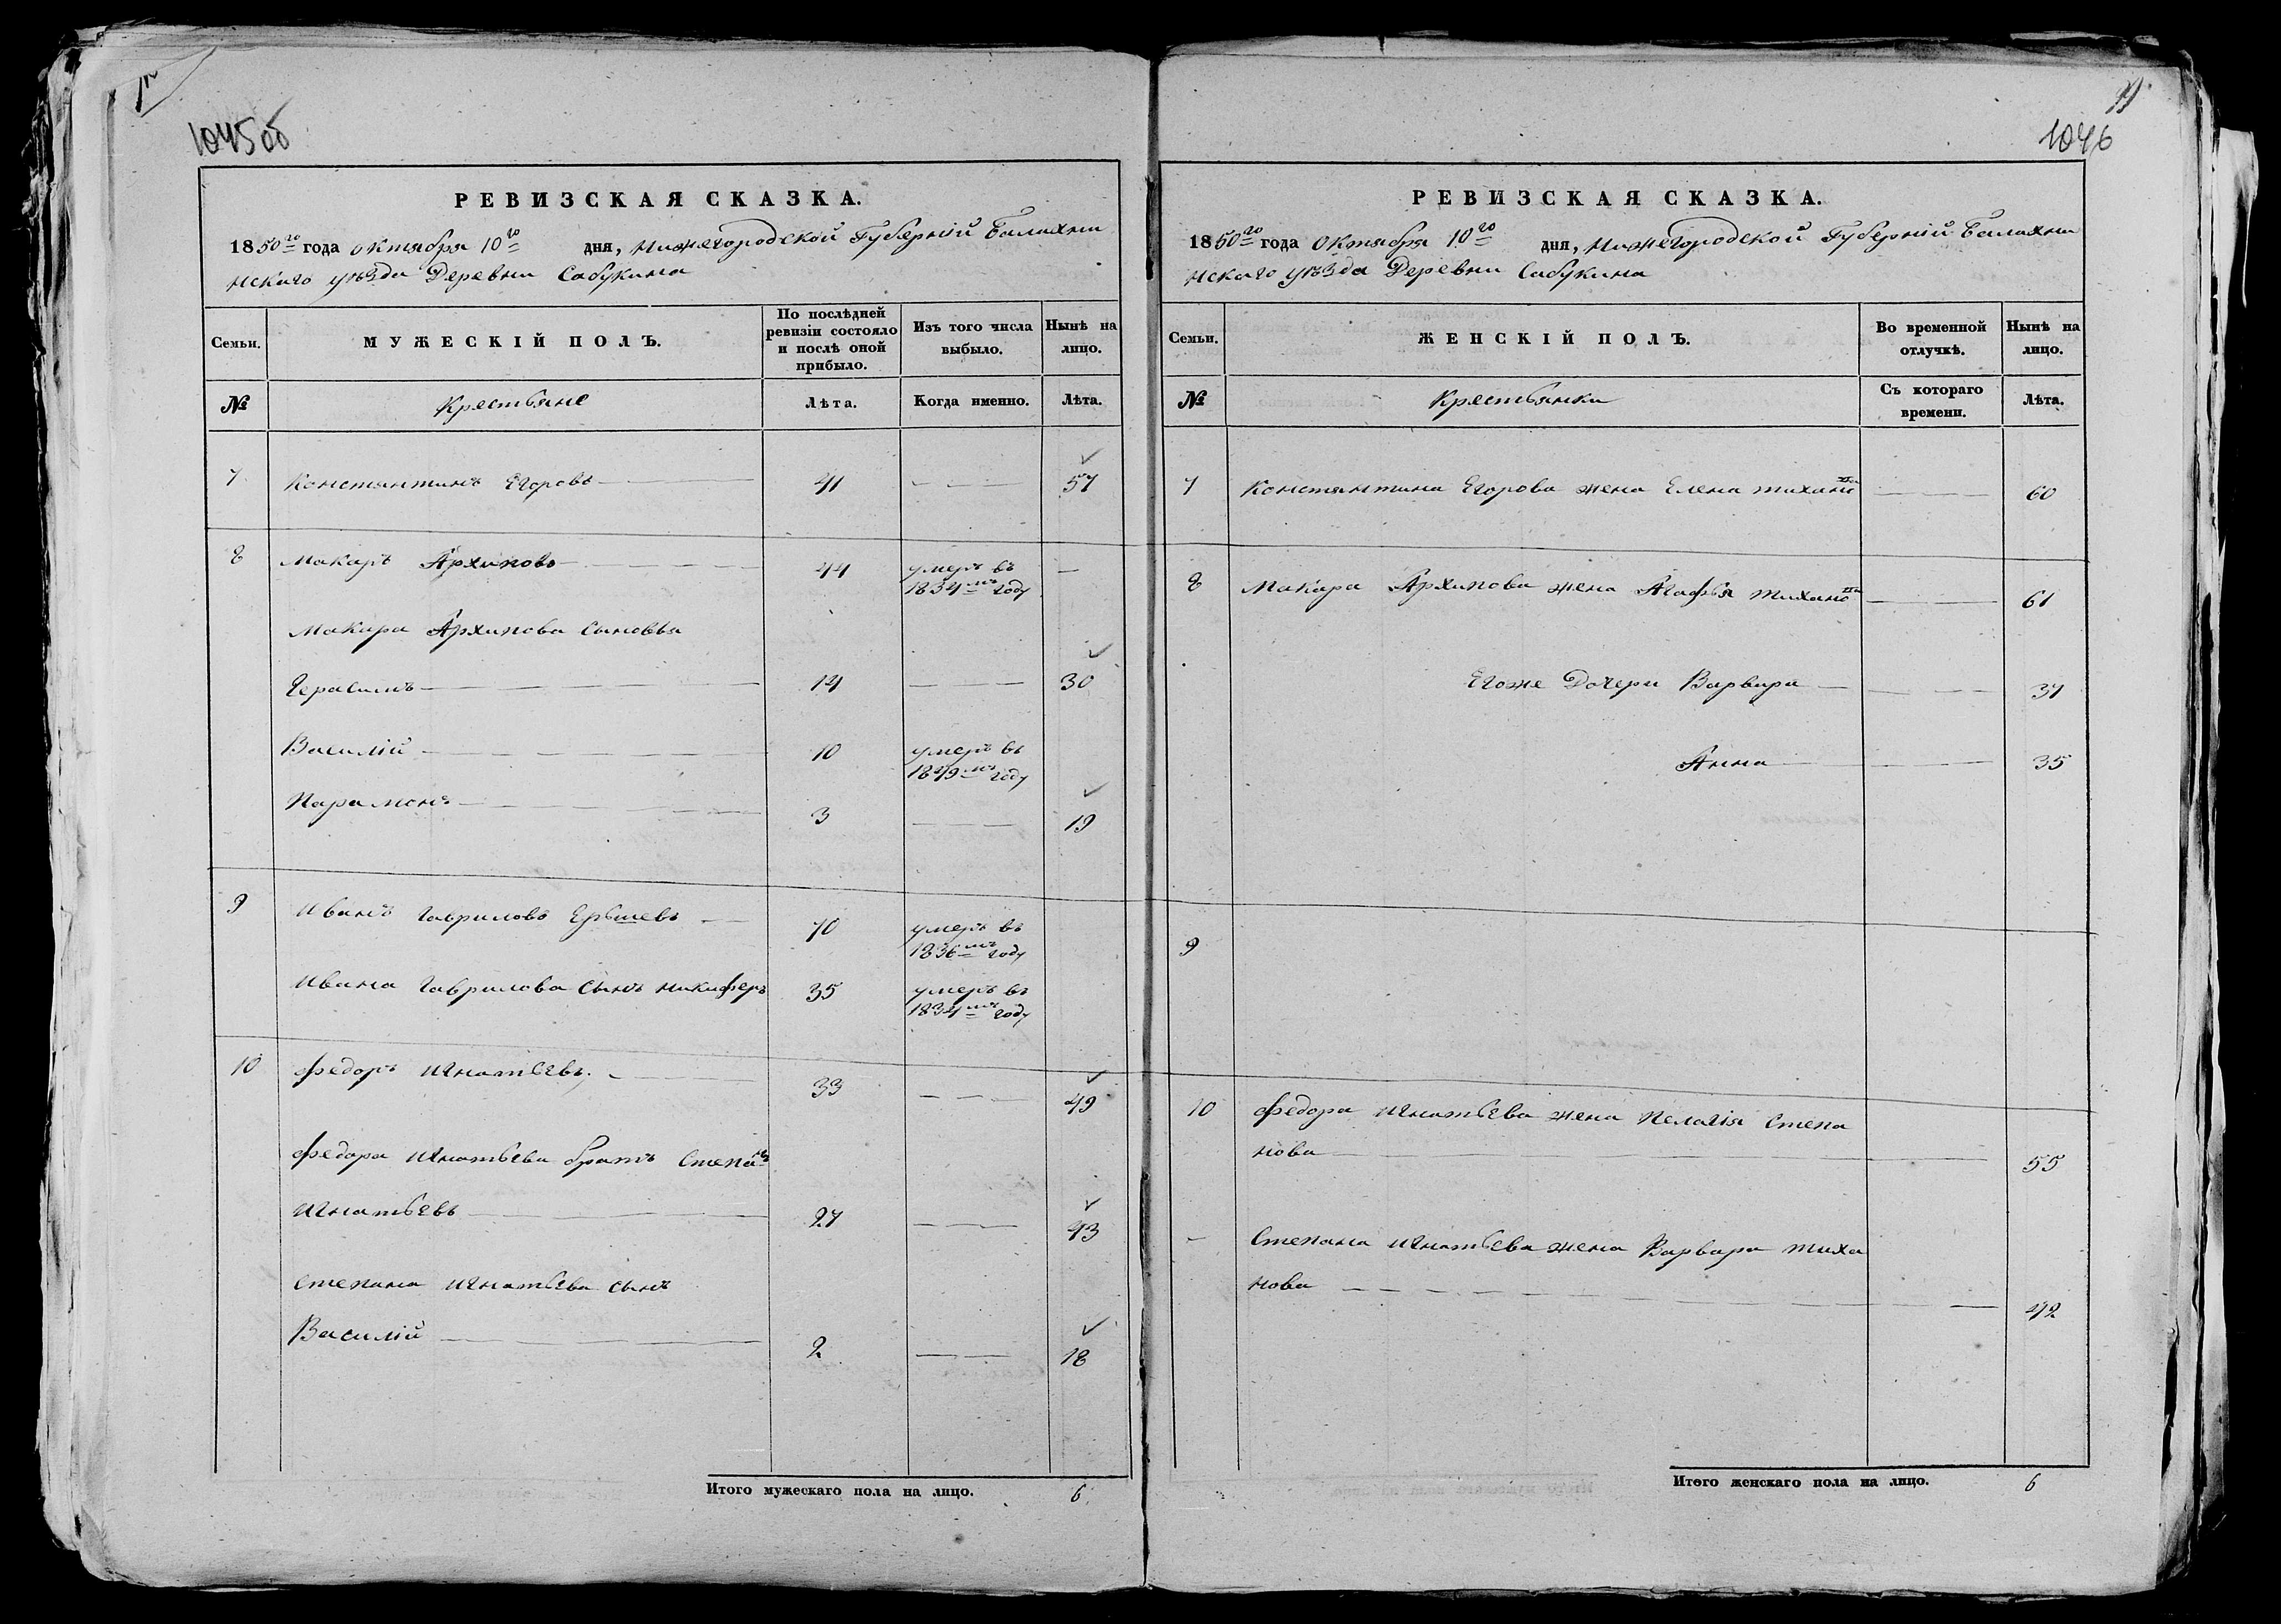 1045об
РЕВИЗСКАЯ СКАЗКА.
1850го года октября 10го дня, Нижегородской Губерній Балахни
нскаго уѣзда Деревни Сабукина
Семьи. МУЖЕСКІЙ ПОЛЪ. По послѣдней ревизіи состояло и послѣ оной прибыло. Изъ того числа выбыло. Нынѣ на лицо.
№ Крестьяне Лѣта. Когда именно. Лѣта.
7 Константинъ Егоровъ 41 57
8 Макаръ Архиповъ 44 умеръ въ
1834мъ году
Макара Архипова сыновья
Герасимъ 14 30
Василій 10 умеръ въ
1849мъ году
Парамонъ 3 19
9 Иванъ Гавриловъ Ершевъ 70 умеръ въ
1836мъ году
Ивана Гаврилова сынъ Никифоръ 35 умеръ въ
1834мъ году
10 Федоръ Игнатьевъ 33 49
Федора Игнатьева братъ Степанъ
Игнатьевъ 27 43
Степана Игнатьева сынъ
Василій 2 18
Итого мужескаго пола на лицо. 6
1046
РЕВИЗСКАЯ СКАЗКА.
1850го года Октября 10го дня, Нижегородской Губерній Балахни
нскаго уѣзда Деревни Сабукина
Семьи. ЖЕНСКІЙ ПОЛЪ. Во временной отлучкѣ. Нынѣ на лицо.
№ Крестьянки Съ котораго времени. Лѣта.
7 Константина Егорова жена Елена Тиханова 60
8 Макара Архипова жена Агафья Тиханова 61
Егоже Дочери Варвара 37
Анна 35
9
10 Федора Игнатьева жена Пелагія Степа
нова 55
Степана Игнатьева жена Варвара Тиха
нова 42
Итого женскаго пола на лицо. 6